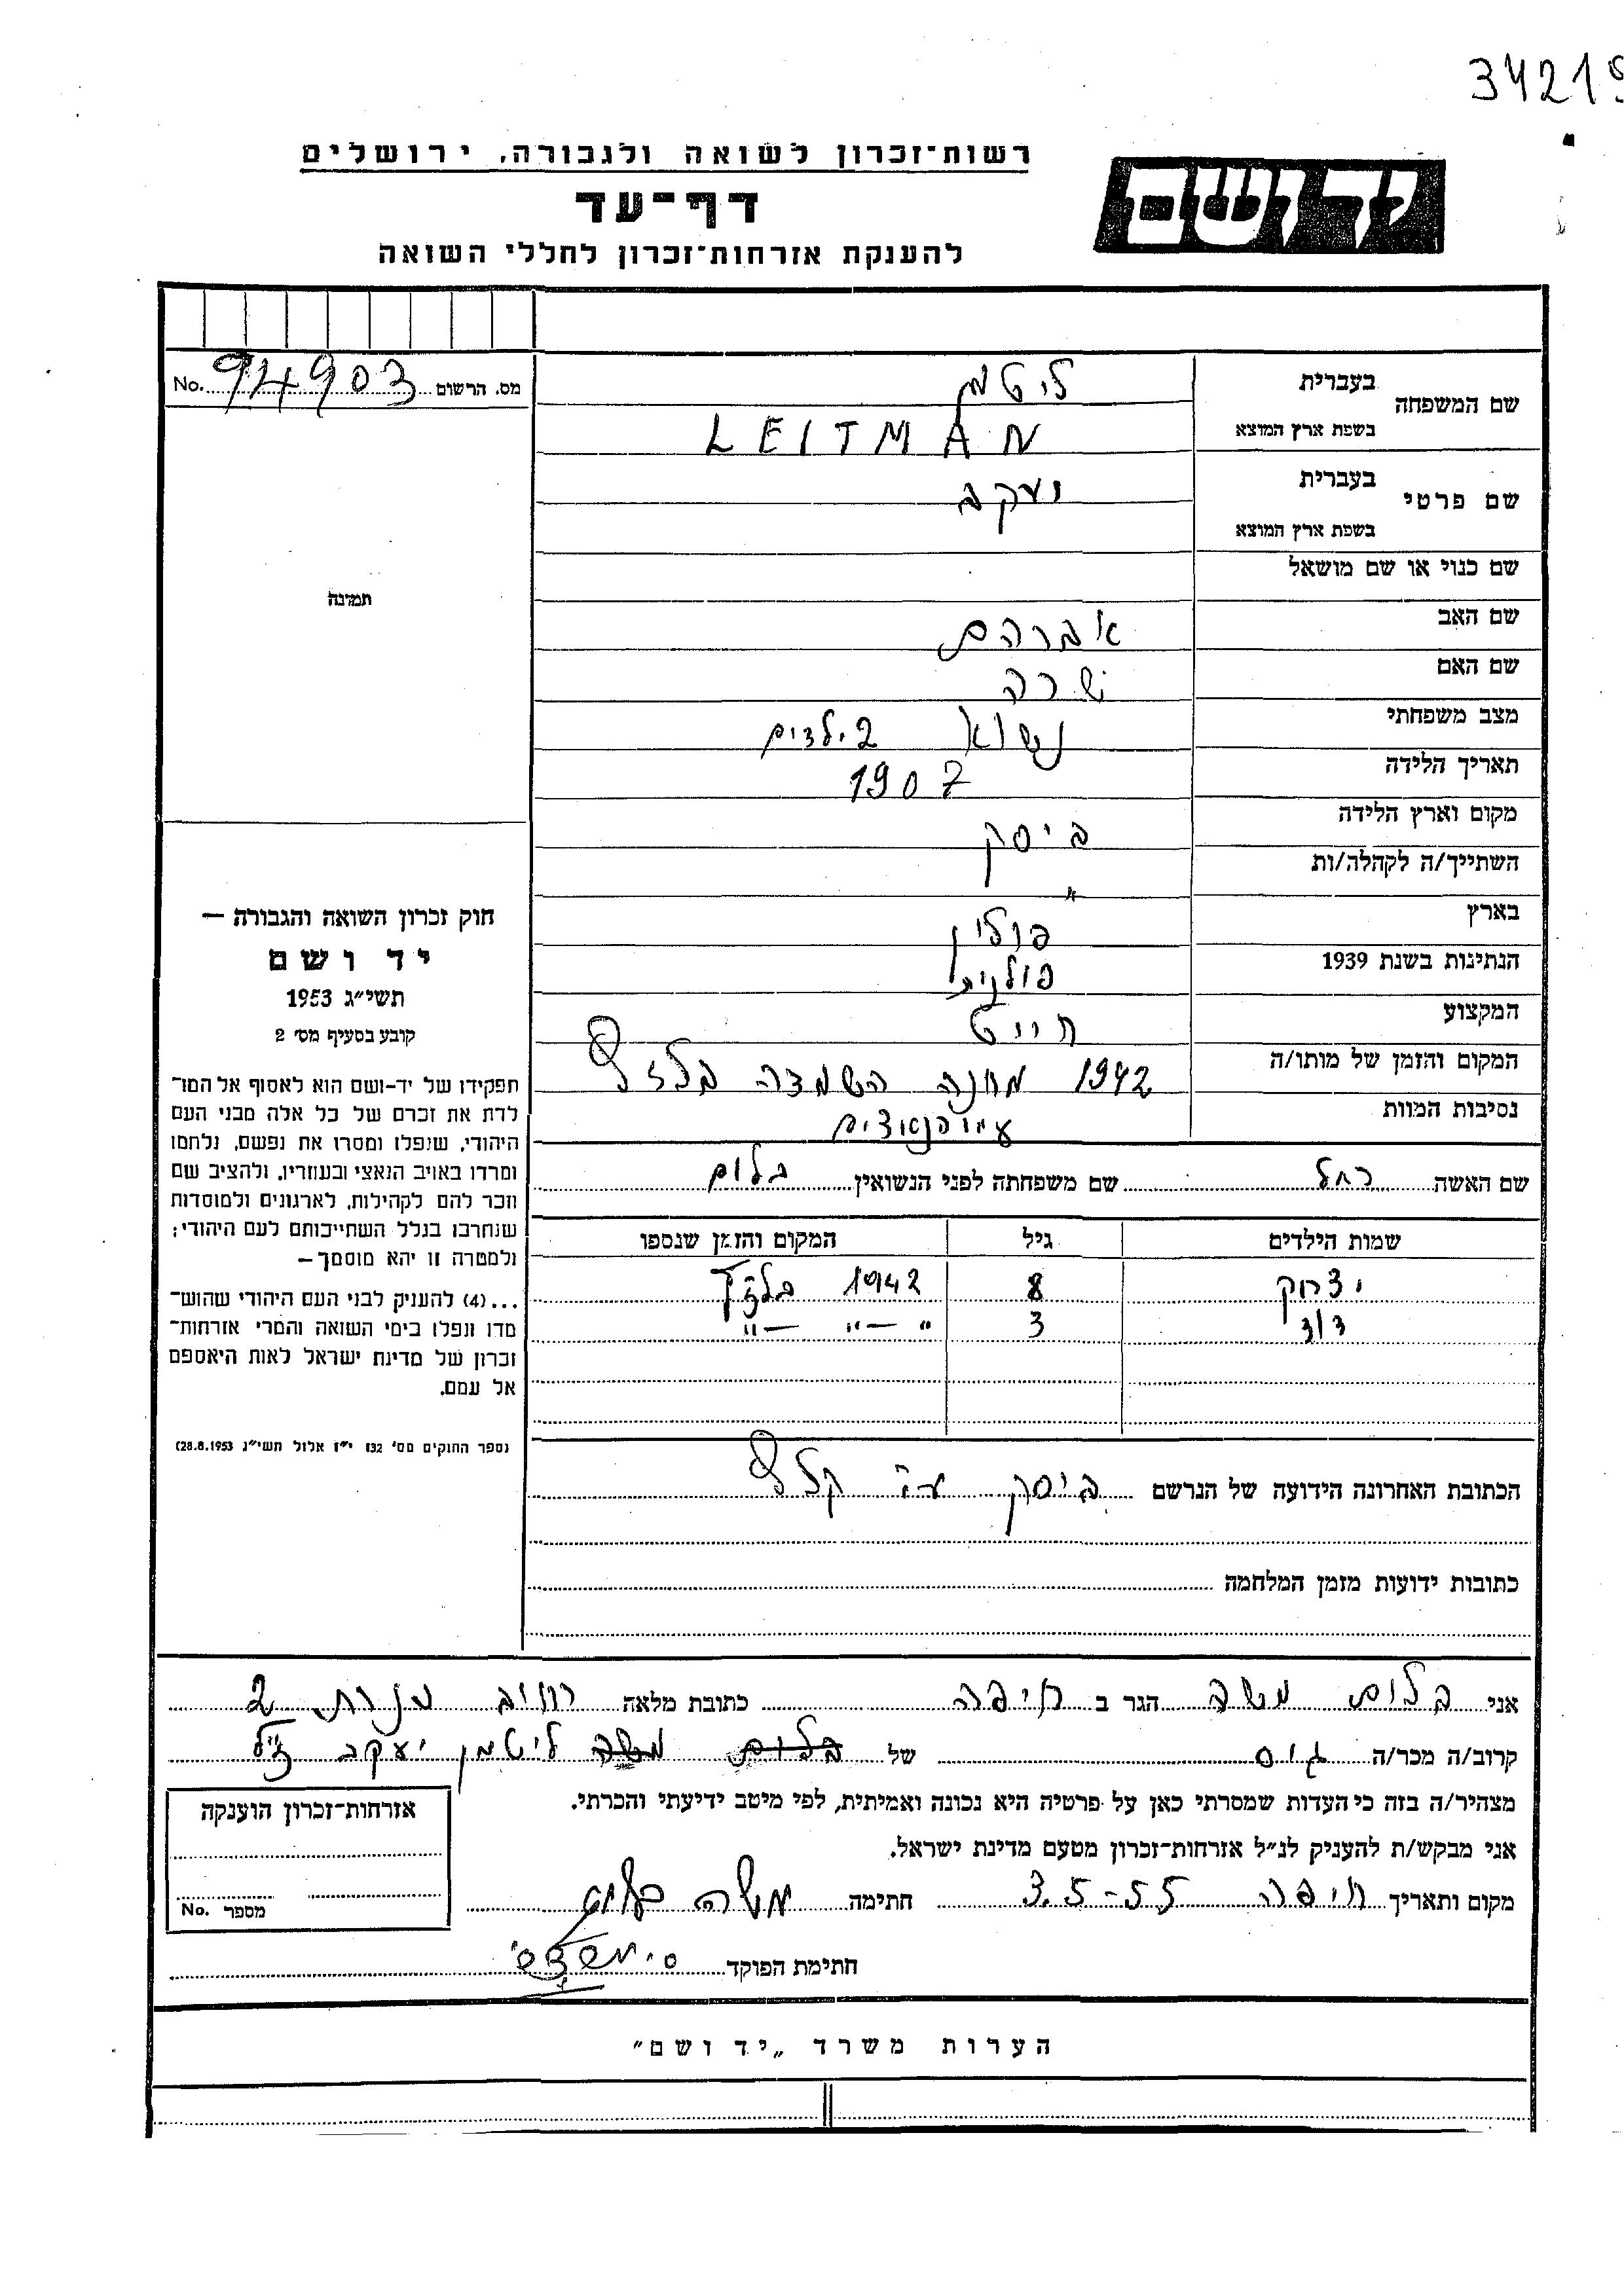 3421
רשות־זכרון לשואה ולגבורה, ירושלים
יד ושם
דף־עד
להענקת אזרחות־זכרון לחללי השואה
מס. הרשום 94903 No.
שם המשפחה בעברית ליטמן
בשפת ארץ המוצא LEITMAN
שם פרטי בעברית יעקב
בשפת ארץ המוצא
תמונה
שם כנוי או שם מושאל
שם האב אברהם
שם האם שרה
מצב משפחתי נשוא 2 ילדים
תאריך הלידה 1907
מקום וארץ הלידה ביסק
השתייך/ה לקהלה/ות "
בארץ פולין
הנתינות בשנת 1939 פולנית
המקצוע חייט
המקום והזמן של מותו/ה 1942 מחנה השמדה בלזץ
נסיבות המוות ע"י הנאצים
שם האשה רחל שם משפחתה לפני הנשואין בלום
שמות הילדים גיל המקום והזמן שנספו
יצחק 8 1942 בלזץ
דוד 3 " — " — "
הכתובת האחרונה הידועה של הנרשם ביסק
כתובות ידועות מזמן המלחמה
חוק זכרון השואה והגבורה —
יד ושם
תשי״ג 1953
קובע בסעיף מס׳ 2
תפקידו של יד-ושם הוא לאסוף אל המו־
לדת את זכרם של כל אלה מבני העם
היהודי, שנפלו ומסרו את נפשם, נלחמו
ומרדו באויב הנאצי ובעוזריו, ולהציב שם
וזכר להם לקהילות, לארגונים ולמוסדות
שנחרבו בגלל השתייכותם לעם היהודי;
ולמטרה זו יהא מוסמך —
...(4) להעניק לבני העם היהודי שהוש־
מדו ונפלו בימי השואה והמרי אזרחות־
זכרון של מדינת ישראל לאות היאספם
אל עמם.
(ספר החוקים מס׳ 132 י״ז אלול תשי״ג 28.8.1953)
אני בלום משה הגר ב חיפה כתובת מלאה רחוב 2
קרוב/ה מכר/ה גיס של בלום משה ליטמן יעקב ז"ל
מצהיר/ה בזה כי העדות שמסרתי כאן על פרטיה היא נכונה ואמיתית, לפי מיטב ידיעתי והכרתי.
אני מבקש/ת להעניק לנ״ל אזרחות־זכרון מטעם מדינת ישראל.
מקום ותאריך חיפה 3.5-55 חתימה משה בלום
חתימת הפוקד
אזרחות־זכרון הוענקה
מספר No.
הערות משרד „יד ושם״